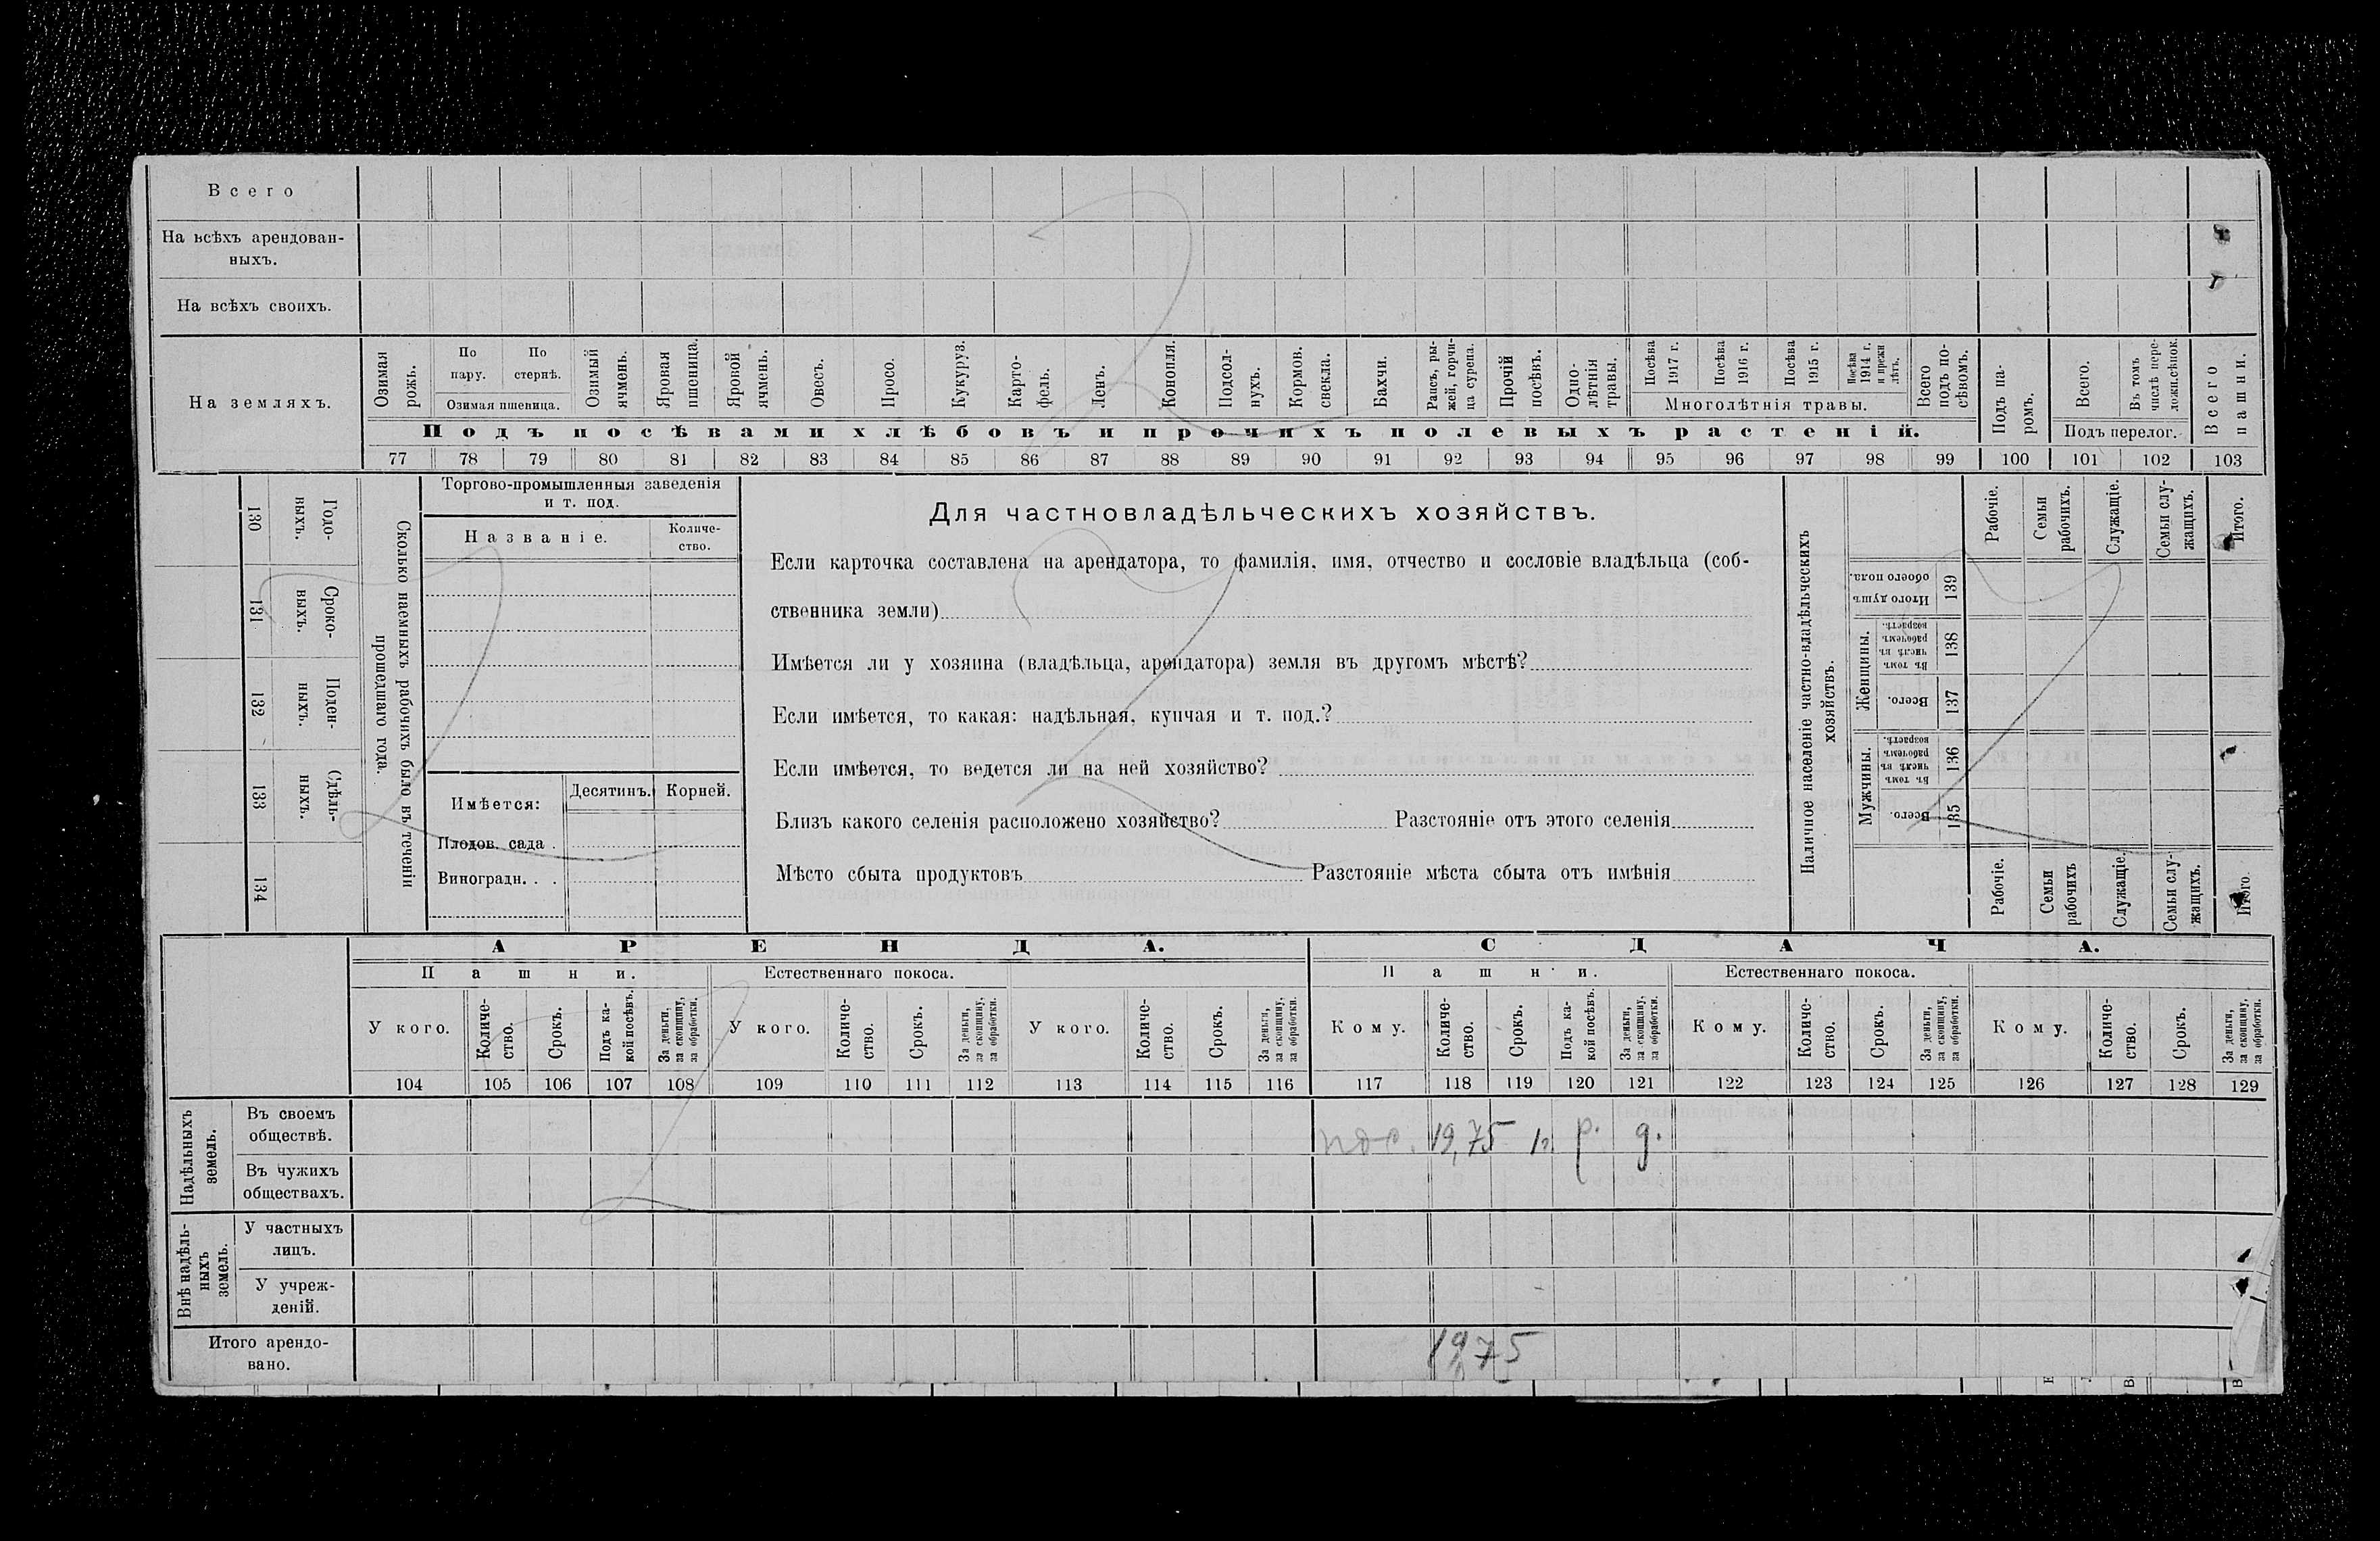 Всего
На всѣхъ арендован-
ныхъ.
На всѣхъ своихъ.
На земляхъ.
Озимая рожь.
По пару.
По стернѣ.
Озимая пшеница.
Озимый ячмень.
Яровая пшеница.
Яровой ячмень.
Овесъ.
Просо.
Кукуруз.
Карто-
фель.
Ленъ.
Конопля.
Подсол-
нухъ.
Кормов. свекла.
Бахчи.
Рапсъ, ры-
жей, горчи-
ца сурепа.
Прочій посѣвъ.
Одно-
лѣтнія травы.
Посѣва 1917 г.
Посѣва 1916 г.
Посѣва 1915 г.
Посѣва 1914 г. и прежн лѣтъ.
Многолѣтнія травы.
Всего подъ по-
сѣвомъ.
Подъ посѣвами хлѣбовъ и прочихъ полевыхъ растеній.
Подъ па-
ромъ.
Всего.
Въ томъ числѣ пере-
ложн.сѣнок.
Подъ перелог.
Всего пашни.
77 78 79 80 81 82 83 84 85 86 87 88 89 90 91 92 93 94 95 96 97 98 99 100 101 102 103
130 Годо-
ныхъ.
131 Сроко-
ныхъ.
132 Поден-
ныхъ.
133 Сдѣль-
ныхъ.
134
Сколько наемныхъ рабочихъ было въ теченіи
прошедшаго года.
Торгово-промышленныя заведенія
и т. под.
Названіе.
Количе-
ство.
Имѣется:
Десятинъ.
Корней.
Плодов. сада .
Виноградн. . .
Для частновладѣльческихъ хозяйствъ.
Если карточка составлена на арендатора, то фамилія, имя, отчество и сословіе владѣльца (соб-
ственника земли)
Имѣется ли у хозяина (владѣльца, арендатора) земля въ другомъ мѣстѣ?
Если имѣется, то какая: надѣльная, купчая и т. под.?
Если имѣется, то ведется ли на ней хозяйство?
Близъ какого селенія расположено хозяйство? Разстояніе отъ этого селенія
Мѣсто сбыта продуктовъ Разстояніе мѣста сбыта отъ имѣнія
Наличное населеніе частно-владѣльческихъ
хозяйствъ.
Рабочіе.
Семьи рабочихъ.
Служащіе.
Семьи слу-
жащихъ.
Итого.
Итого душъ обоего пола. 139
Женщины.
Въ томъ числѣ въ рабочемъ возрастѣ. 138
Всего. 137
Мужчины.
Въ томъ числѣ въ рабочемъ возрастѣ. 136
Всего. 135
Рабочіе.
Семьи рабочихъ
Служащіе.
Семьи слу-
жащихъ.
Итого.
АРЕНДА.
СДАЧА.
Пашни.
Естественнаго покоса.
Пашни.
Естественнаго покоса.
У кого.
Количе-
ство.
Срокъ.
Подъ ка-
кой посѣвъ.
За деньги, за скопщину, за обработки.
У кого.
Количе-
ство.
Срокъ.
За деньги, за скопщину, за обработки.
У кого.
Количе-
ство.
Срокъ.
За деньги, за скопщину, за обработки.
Кому.
Количе-
ство.
Срокъ.
Подъ ка-
кой посѣвъ.
За деньги, за скопщину, за обработки.
Кому.
Количе-
ство.
Срокъ.
За деньги, за скопщину, за обработки.
Кому.
Количе-
ство.
Срокъ.
За деньги, за скопщину, за обработки.
104 105 106 107 108 109 110 111 112 113 114 115 116 117 118 119 120 121 122 123 124 125 126 127 128 129
Надѣльныхъ земель.
Въ своемъ
обществѣ.
19,75 р. g.
Въ чужихъ
обществахъ.
Внѣ надѣль-
ныхъ земель.
У частныхъ
лицъ.
У учреж-
деній.
Итого арендо-
вано.
19,75